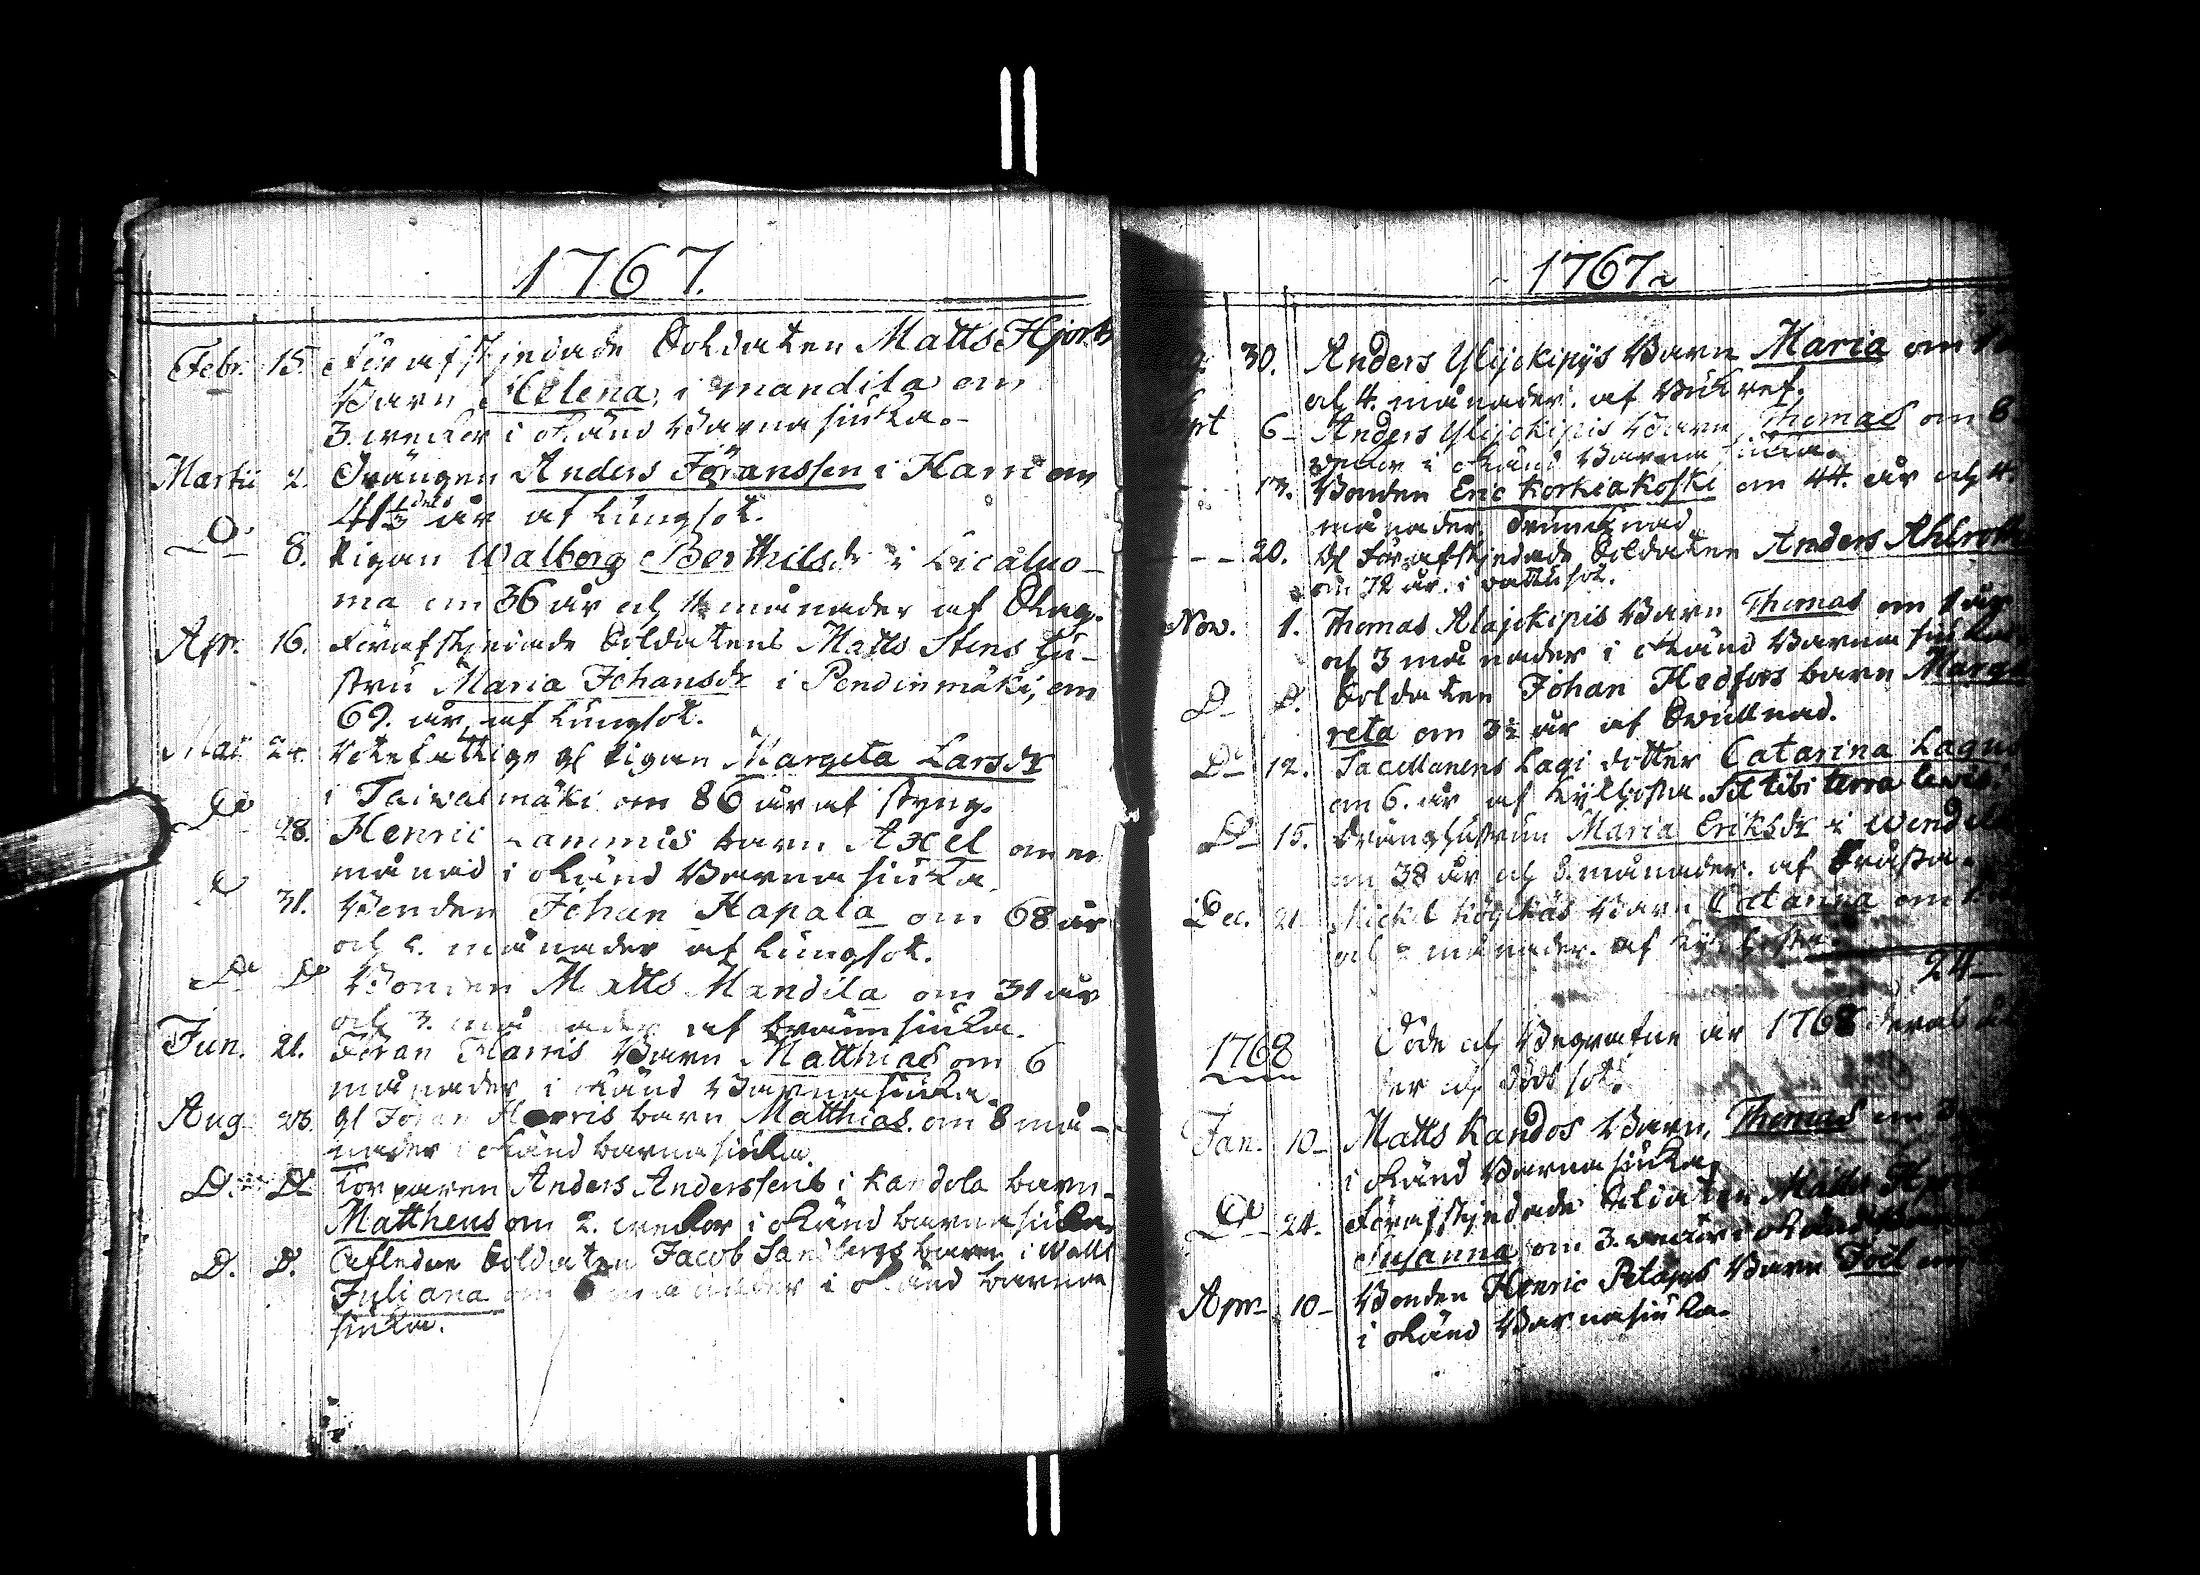 1767.
Febr. 15. Förafskjedade Soldaten Matts Hjorts
Barn Helena, i Mandila om
3. weckor i okänd Barnasiuka.
Martii 2. Drängen Anders Jöranssen i Harri om
41 1/3 dels år af lungsot.
D:o 8. Pigan Walborg Berthilsdr i
ma om 36 år och månader af Slag.
Apr. 16. Förafskjedade Soldatens Matts Stens hu-
stru Maria Johansdr i Pendinmäki, om
69. år, af lungsot.
Mai 24. Utefattige gl Pigan Margeta Larsdr
i Taivalmäki om 86 år af styng.
D:o 28. Henric Lammis barn Axel om en
månad i okänd Barnasiuka.
D:o 31. Bonden Johan Hapala om 68 år
och månader af lungsot.
D:o D:o Bonden Matts Mandila om 31 år
och 3. månader af brännsiuka.
Jun. 21. Jöran Harris Barn Matthias om 6
månader i okänd Barnasiuka.
Aug. 23. gl Jöran Harris barn Matthias. om 8 må-
nader i okänd barnasiuka.
D:o D:o Torparen Anders Anderssens i Kandola barn
Mattheus om 2. weckor i okänd barnasiuka.
D. D. Afledne Soldaten Jacob Sandbergs barn i
Juliana om månader i okänd barna
siuka.
1767
30. Anders Ylijokipijs Barn Maria om
och 4. månader. af Bukref.
Sept 6 Anders Ylijokipis Barn Thomas om 8
weckor i okänd Barnasiuka.
13. Bonden Eric Korkiakoski om 44. år och 4.
månader, drunknad.
20. gl Förafskjedade Soldaten Anders Ahlroth
om 72 år. i wattusot.
Nov. 1. Thomas Alajokipis Barn Thomas om 1 år
och 3 månader i okänd Barnasiuka.
D. D. Soldaten Johan Hedfors barn Marga
reta om 3½ år af Swullnad.
D:o 12. Sacellanens Lagi dotter Catarina Lagus
om 6. år af Kikhosta. Sit tibi terra levis!
D:o 15. Dränghustrun Maria Eriksdr i
om 38 år och 8. månader. af Bråssa.
Dec. 21 Mickel Barn Catarina om
och månader. af Kikhosta.
24
1768 Döde och Begrafne år 1768 deras ål
der och dödssot.
Jan. 10 Matts Kandos Barn, Thomas om
i okänd Barnasiuka.
D:o 24. Förafskjedade Soldaten Matts Hjorts
Susanna om 3. weckor i okänd
Apr. 10 Bonden Henric Barn Joel om
i okänd Barnasiuka.